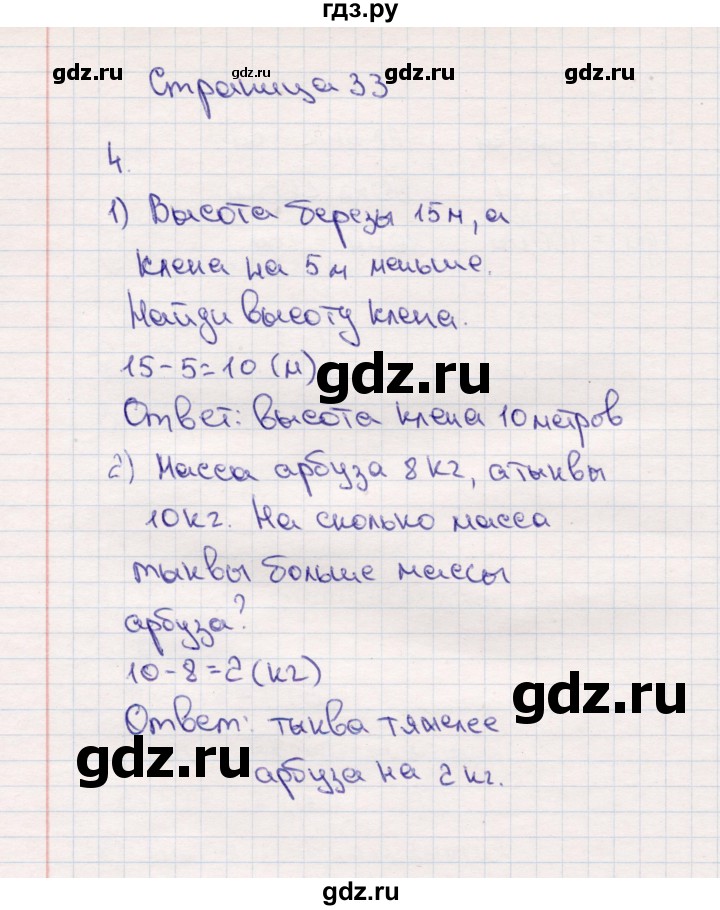 гдз.ру
gdz.ru gdz.ru gdz.ru
Страница 33
4.
1) Высота березы 15м, а
клена на 5м меньше.
Найди высоту клена.
15-5=10 (м)
gdz.ru
Ответ: высота клена 10метров
2) Масса арбуза 8кг, а тыквы
10кг. На сколько масса
тыквы больше массы
арбуза?
10-8=2(кг)
gdz.ru
Ответ: тыква тяжелее
gdz.ru
арбуза на 2кг.
gdz.ru